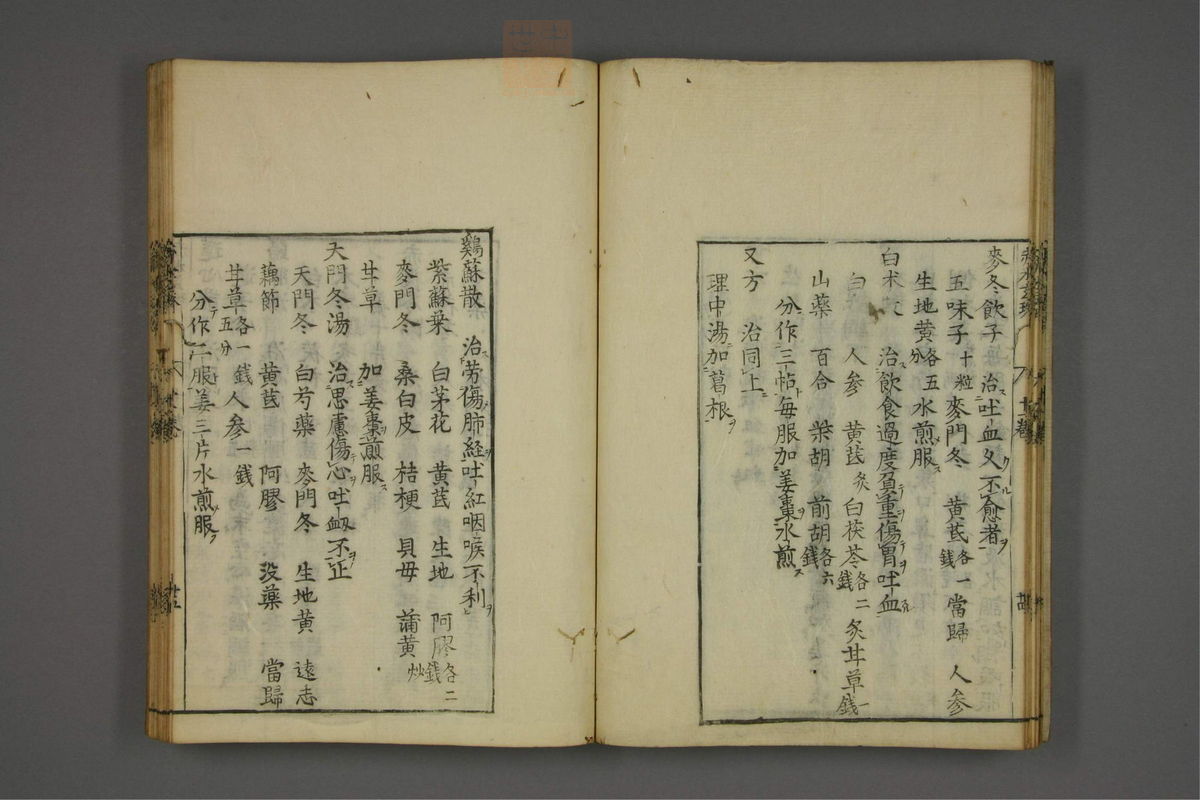 麥冬飲子 治吐血久不愈者
五味子十粒 麥門冬 黃芪各一錢 當歸 人參
生地黃各五分 水煎服
白朮 治飲食過度負重傷胃吐血
白 人參 黃芪炙 白茯苓各二錢 炙甘草一錢
山藥 百合 柴胡 前胡各六錢
分作三帖每服加姜棗水煎
又方 治同上
理中湯加葛根
鷄蘇散 治勞傷肺経吐紅咽喉不利
紫蘇葉 白茅花 黃芪 生地 阿膠各二錢
麥門冬 桑白皮 桔梗 貝母 蒲黃炒
甘草 加姜棗煎服
天門冬湯 治思慮傷心吐衂不止
天門冬 白芍藥 麥門冬 生地黃 遠志
藕節 黃芪 阿膠 没藥 當歸
甘草各一錢五分 人參一錢
分作二服姜三片水煎服